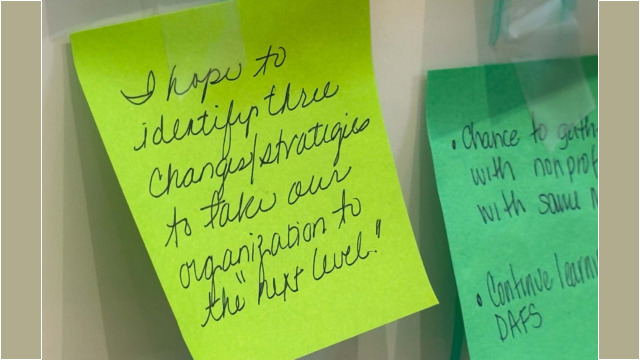 I hope to
identify three
changes/strategies
to take our
organization to
the "next level."
• Chance to gath
with nonprof
with same
• Continue learni
DAFS